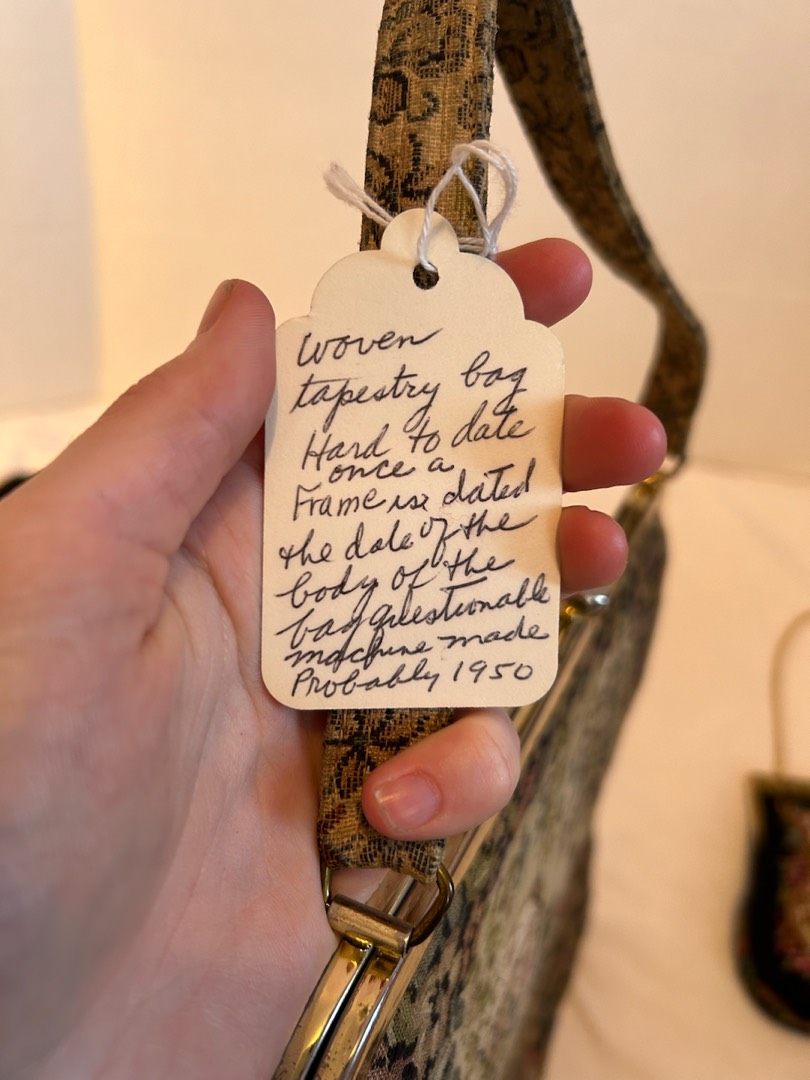 Woven
tapestry bag
Hard to date
once a
Frame is dated
the date of the
body of the
bag questionable
machine made
Probably 1950